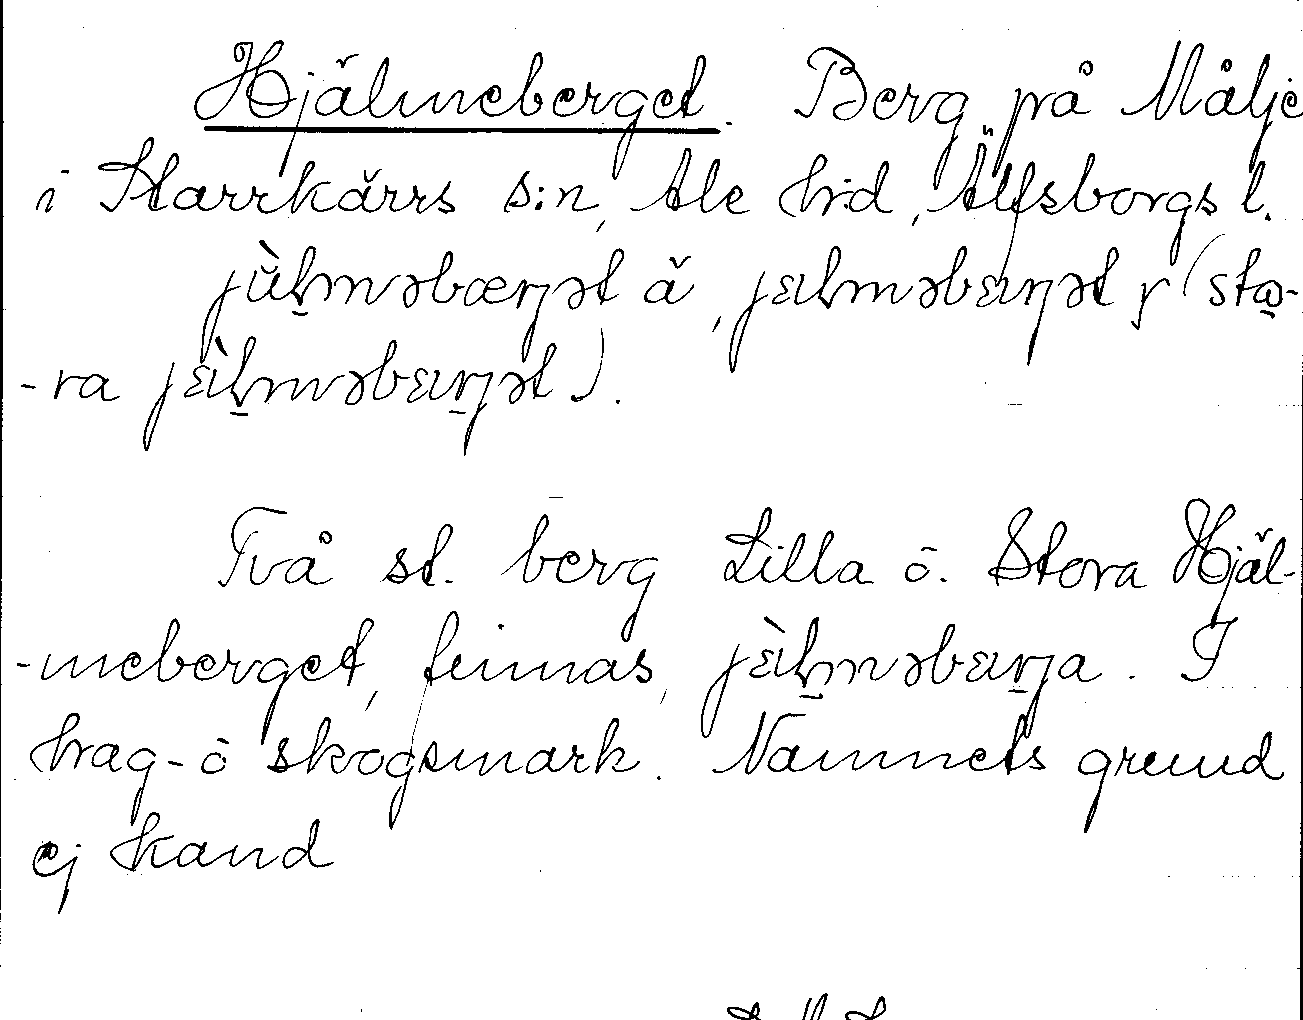 Hjälmeberget. Berg på Målje
i Starrkärrs s:n, Ale hd, Älfsborgs l.
jὼlmǝbærgǝt ä, jɛlmǝbɛrgǝt y (sta-
-ra jɛ̀lmǝbɛrgǝt).
Två st. berg Lilla o. Stora Hjäl-
-meberget, finnas, jɛ̀lmǝbɛrga. I
hag- o skogsmark. Namnets grund
ej känd